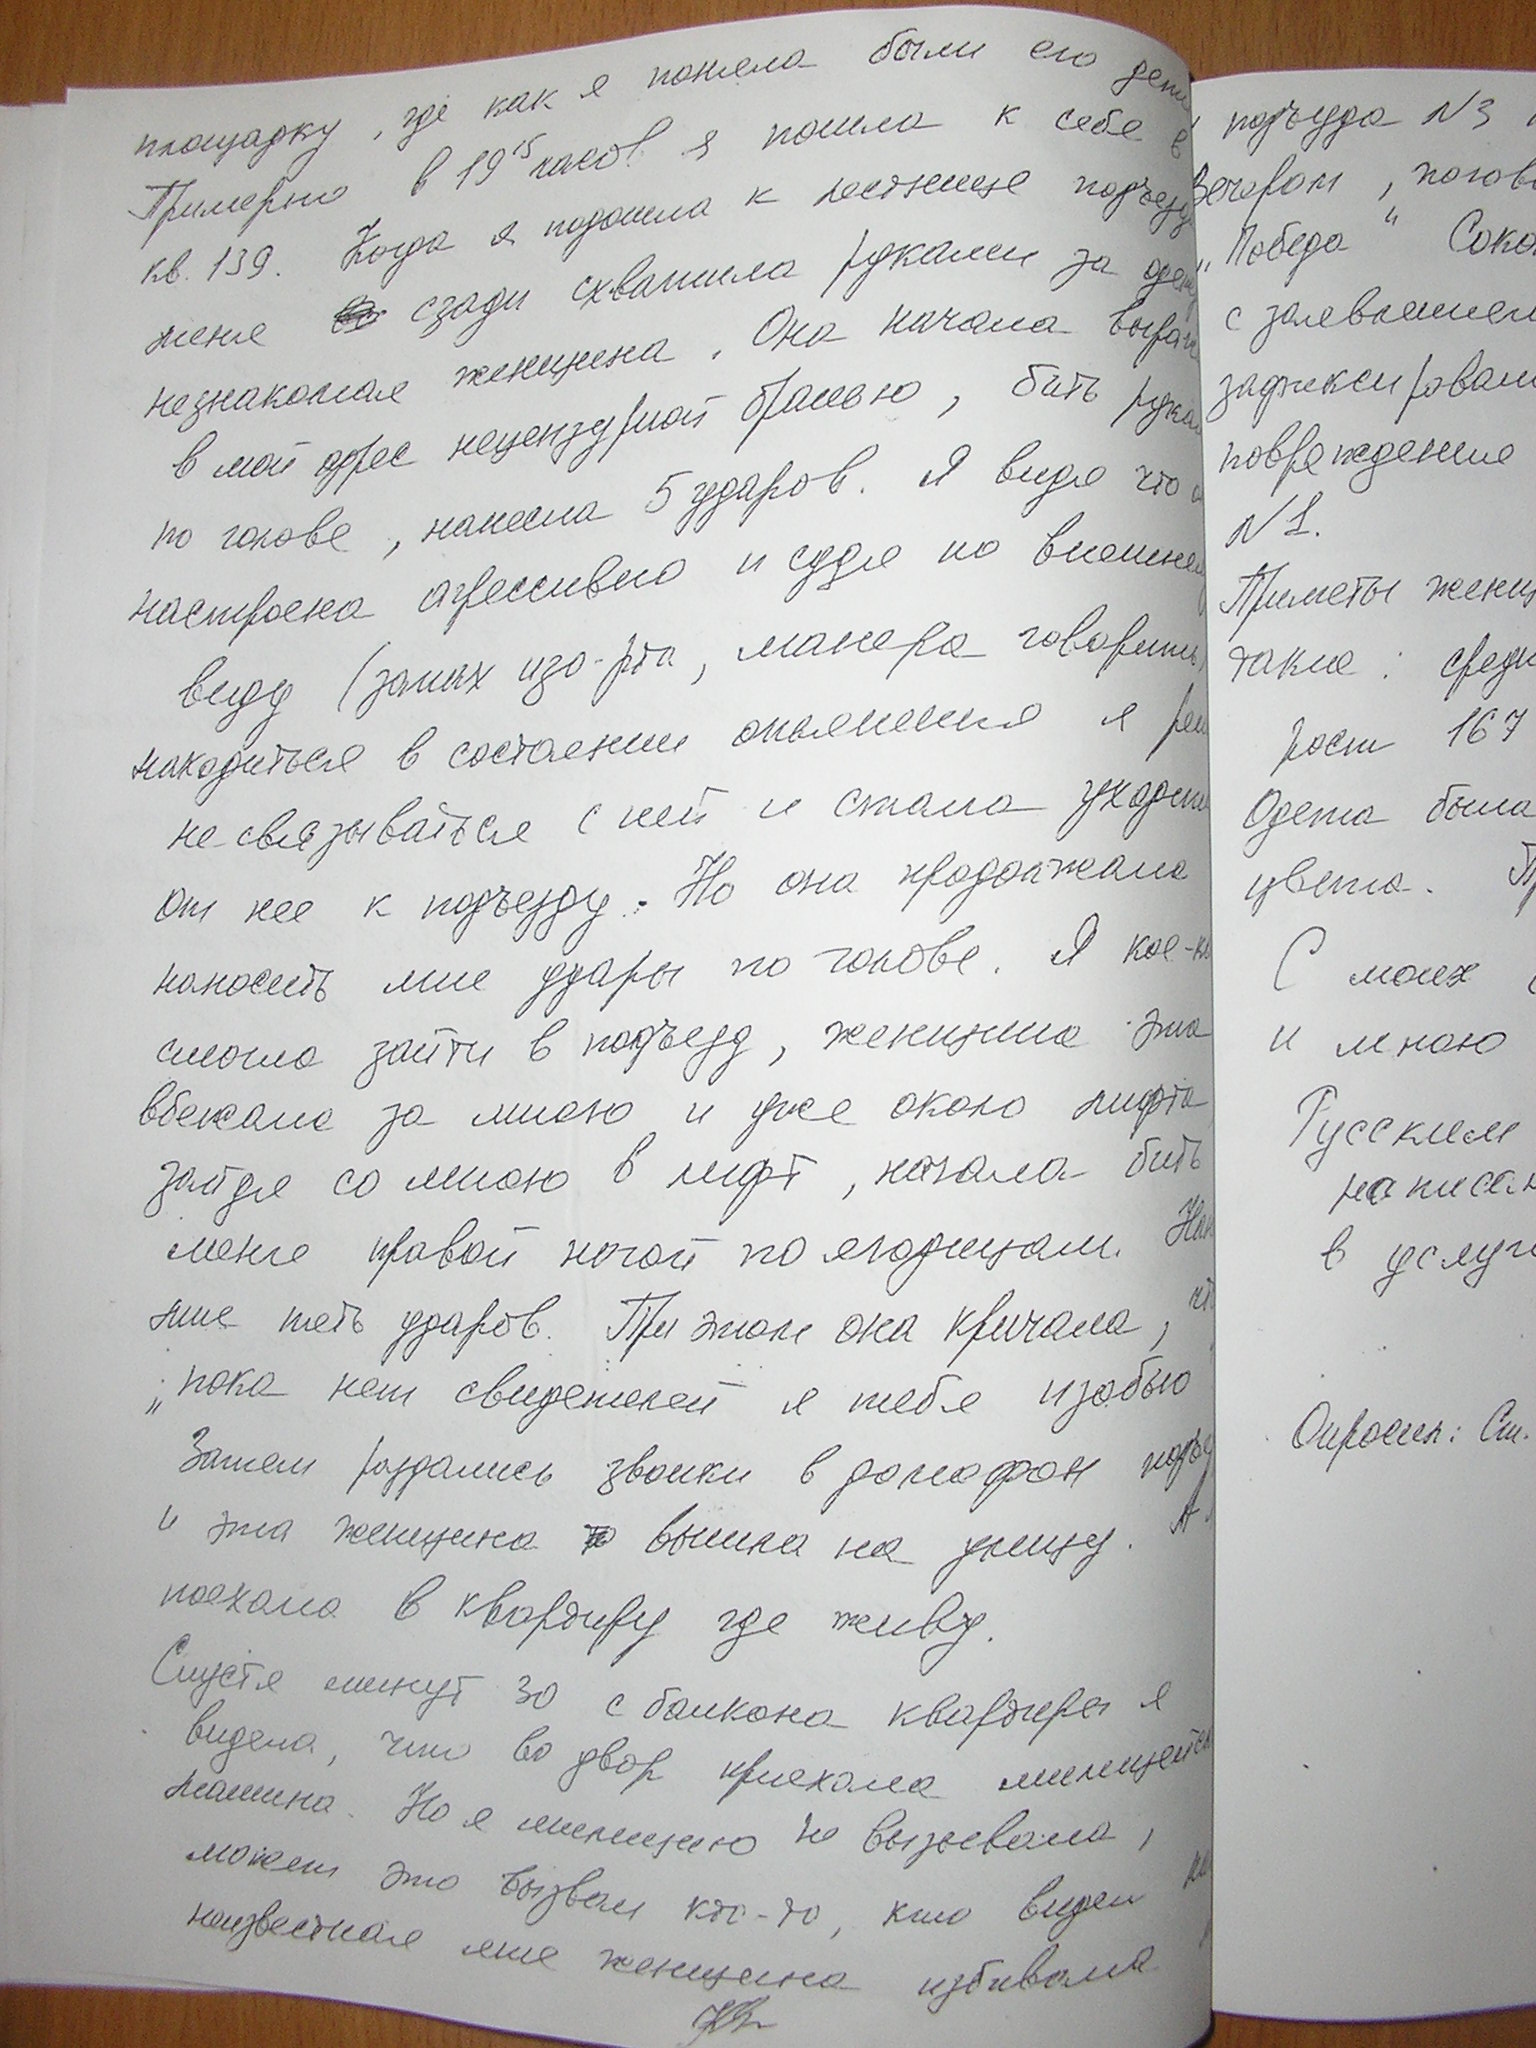 площадку, где как я поняла были его дети
Примерно в 19¹⁵ часов я пошла к себе в
кв. 139. Когда я подошла к лестнице подъезда
меня сзади схватила руками за
незнакомая женщина. Она начала
в мой адрес нецензурной бранью, бить рука
по голове, нанесла 5 ударов. Я видя что
настроена агрессивно и судя по внешнему
виду (запах изо-рта, манера говорить)
находиться в состоянии опьянения я реш
не связываться с ней и стала уходить
от нее к подъезду. Но она продолжала
наносить мне удары по голове. Я кое-к
смогла зайти в подъезд, женщина эта
вбежала за мною и уже около лифта
зайдя со мною в лифт, начала бить
меня правой ногой по ягодицам. Нан
мне пять ударов. При этом она кричала, чт
„пока нет свидетелей я тебя изобью
Затем раздались звонки в домофон подъе
и эта женщина вышла на улицу. А
поехала в квартиру где живу.
Спустя минут 30 с балкона квартиры я
видела, что во двор приехала милицейск
машина. Но я милицию не вызывала,
может это вызвал кто-то, кто видел
неизвестная мне женщина избивала
подъезда N3
Вечером, погов
„Победа" Соко
с заявлением
зафиксировали
повреждение
N1.
Приметы женщ
такие: средн
рост 167
Одета была
цвета.
С моих
и мною
Русским
написан
в услуг
Опросил: Ст.